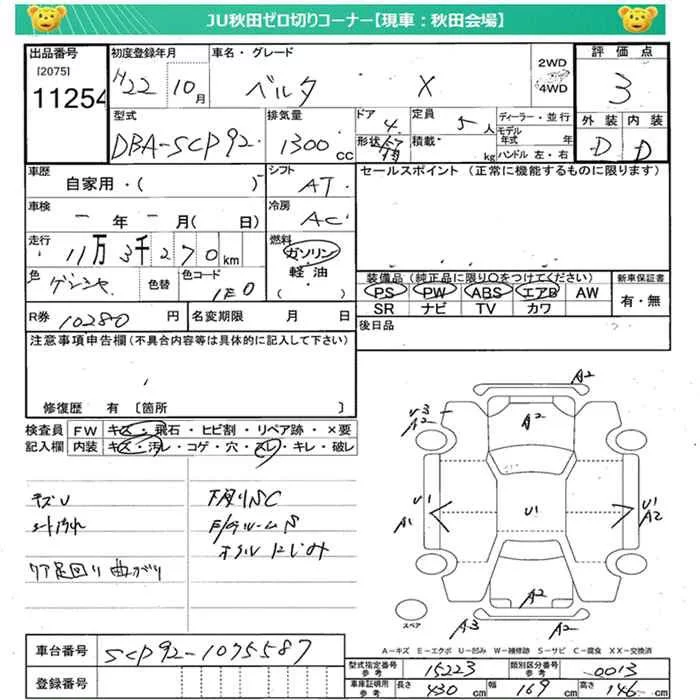 JU秋田ゼロ切りコーナー【現車：秋田会場】
出品番号 初度登録年月 車名・グレード 2WD 評価点
[2075] H22 10月 ベルタ X 4WD 3
11254
型式 排気量 ドア 定員 ディーラー・並行 外装 内装
DBA-SCP92 1300cc 4 5人 モデル年式 年 D D
形状 積載 kg ハンドル 左・右
車歴 シフト セールスポイント (正常に機能するものに限ります)
自家用・( ) AT
車検 冷房
年 月( 日) AC
走行 燃料
11万3千270km ガソリン
軽油
( )
色 色替 色コード 装備品(純正品に限り○をつけてください) 新車保証書
1E0 PS PW ABS エアB AW 有・無
SR ナビ TV カワ
R券 10280円 名変期限 月 日 後日品
注意事項申告欄(不具合内容等は具体的に記入して下さい)
修復歴 有 [箇所 ]
検査員 FW キズ・飛石・ヒビ割・リペア跡・×要
記入欄 内装 キズ・汚レ・コゲ・穴・スレ・キレ・破レ
キズU 下廻りSC
オイルにじみ
リア足回り曲がり
A2
U3
A2 A2
U1 U1 U1
A1 A2
A2
スペア A3 A2
A-キズ E-エクボ U-凹み W-補修跡 S-サビ C-腐食 XX-交換済
車台番号 SCP92-1075587
登録番号
型式指定番号 参考 15223 類別区分番号 参考 0013
車庫証明用 参考 長さ 430cm 幅 169cm 高さ 146cm